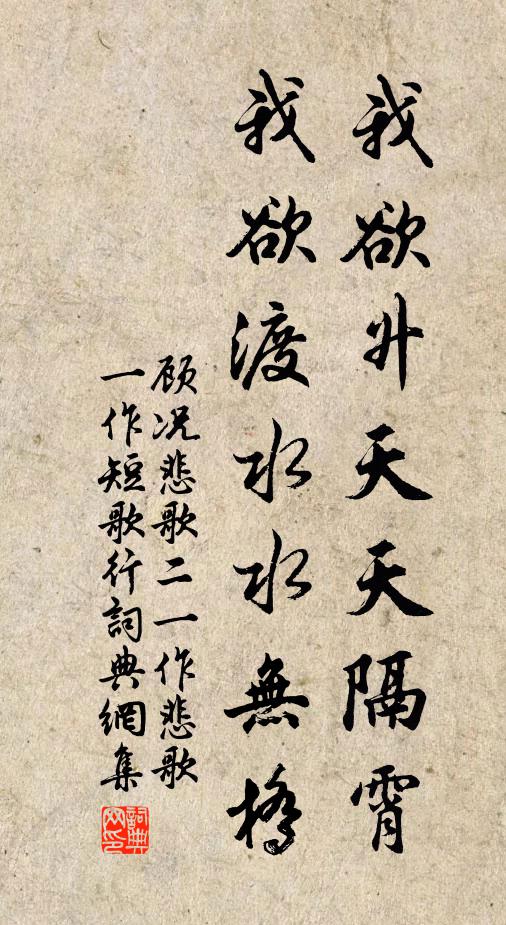 我欲升天天隔霄
我欲渡水水無橋
顾况悲歌二一作悲歌
一作短歌行詞典網集
詞典网印